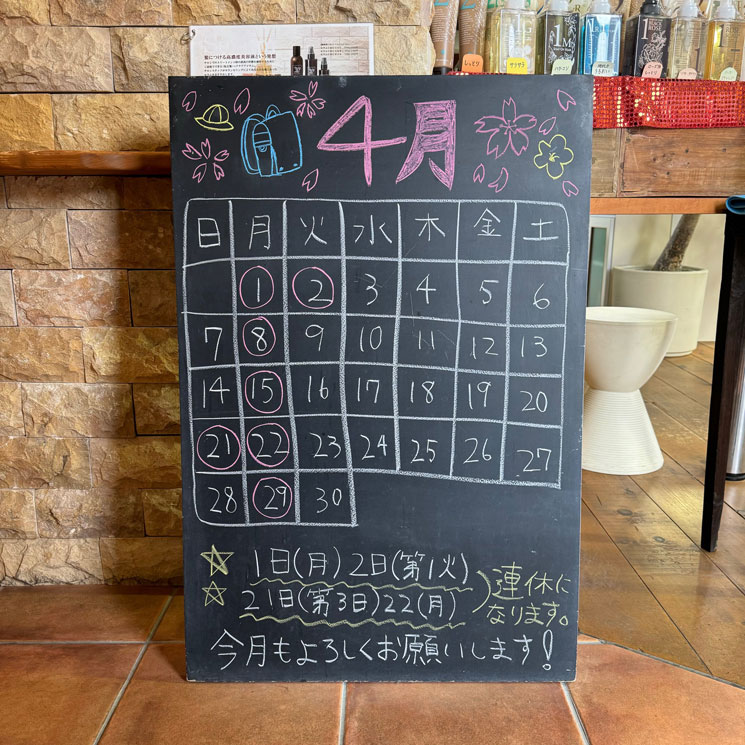 髪につける高濃度美容液という発想
しっとり
サラサラ
4月
日 月 火 水 木 金 土
1 2 3 4 5 6
7 8 9 10 11 12 13
14 15 16 17 18 19 20
21 22 23 24 25 26 27
28 29 30
1日(月) 2日(第1火)
21日(第3日)22(月)
連休に
なります。
今月もよろしくお願いします!